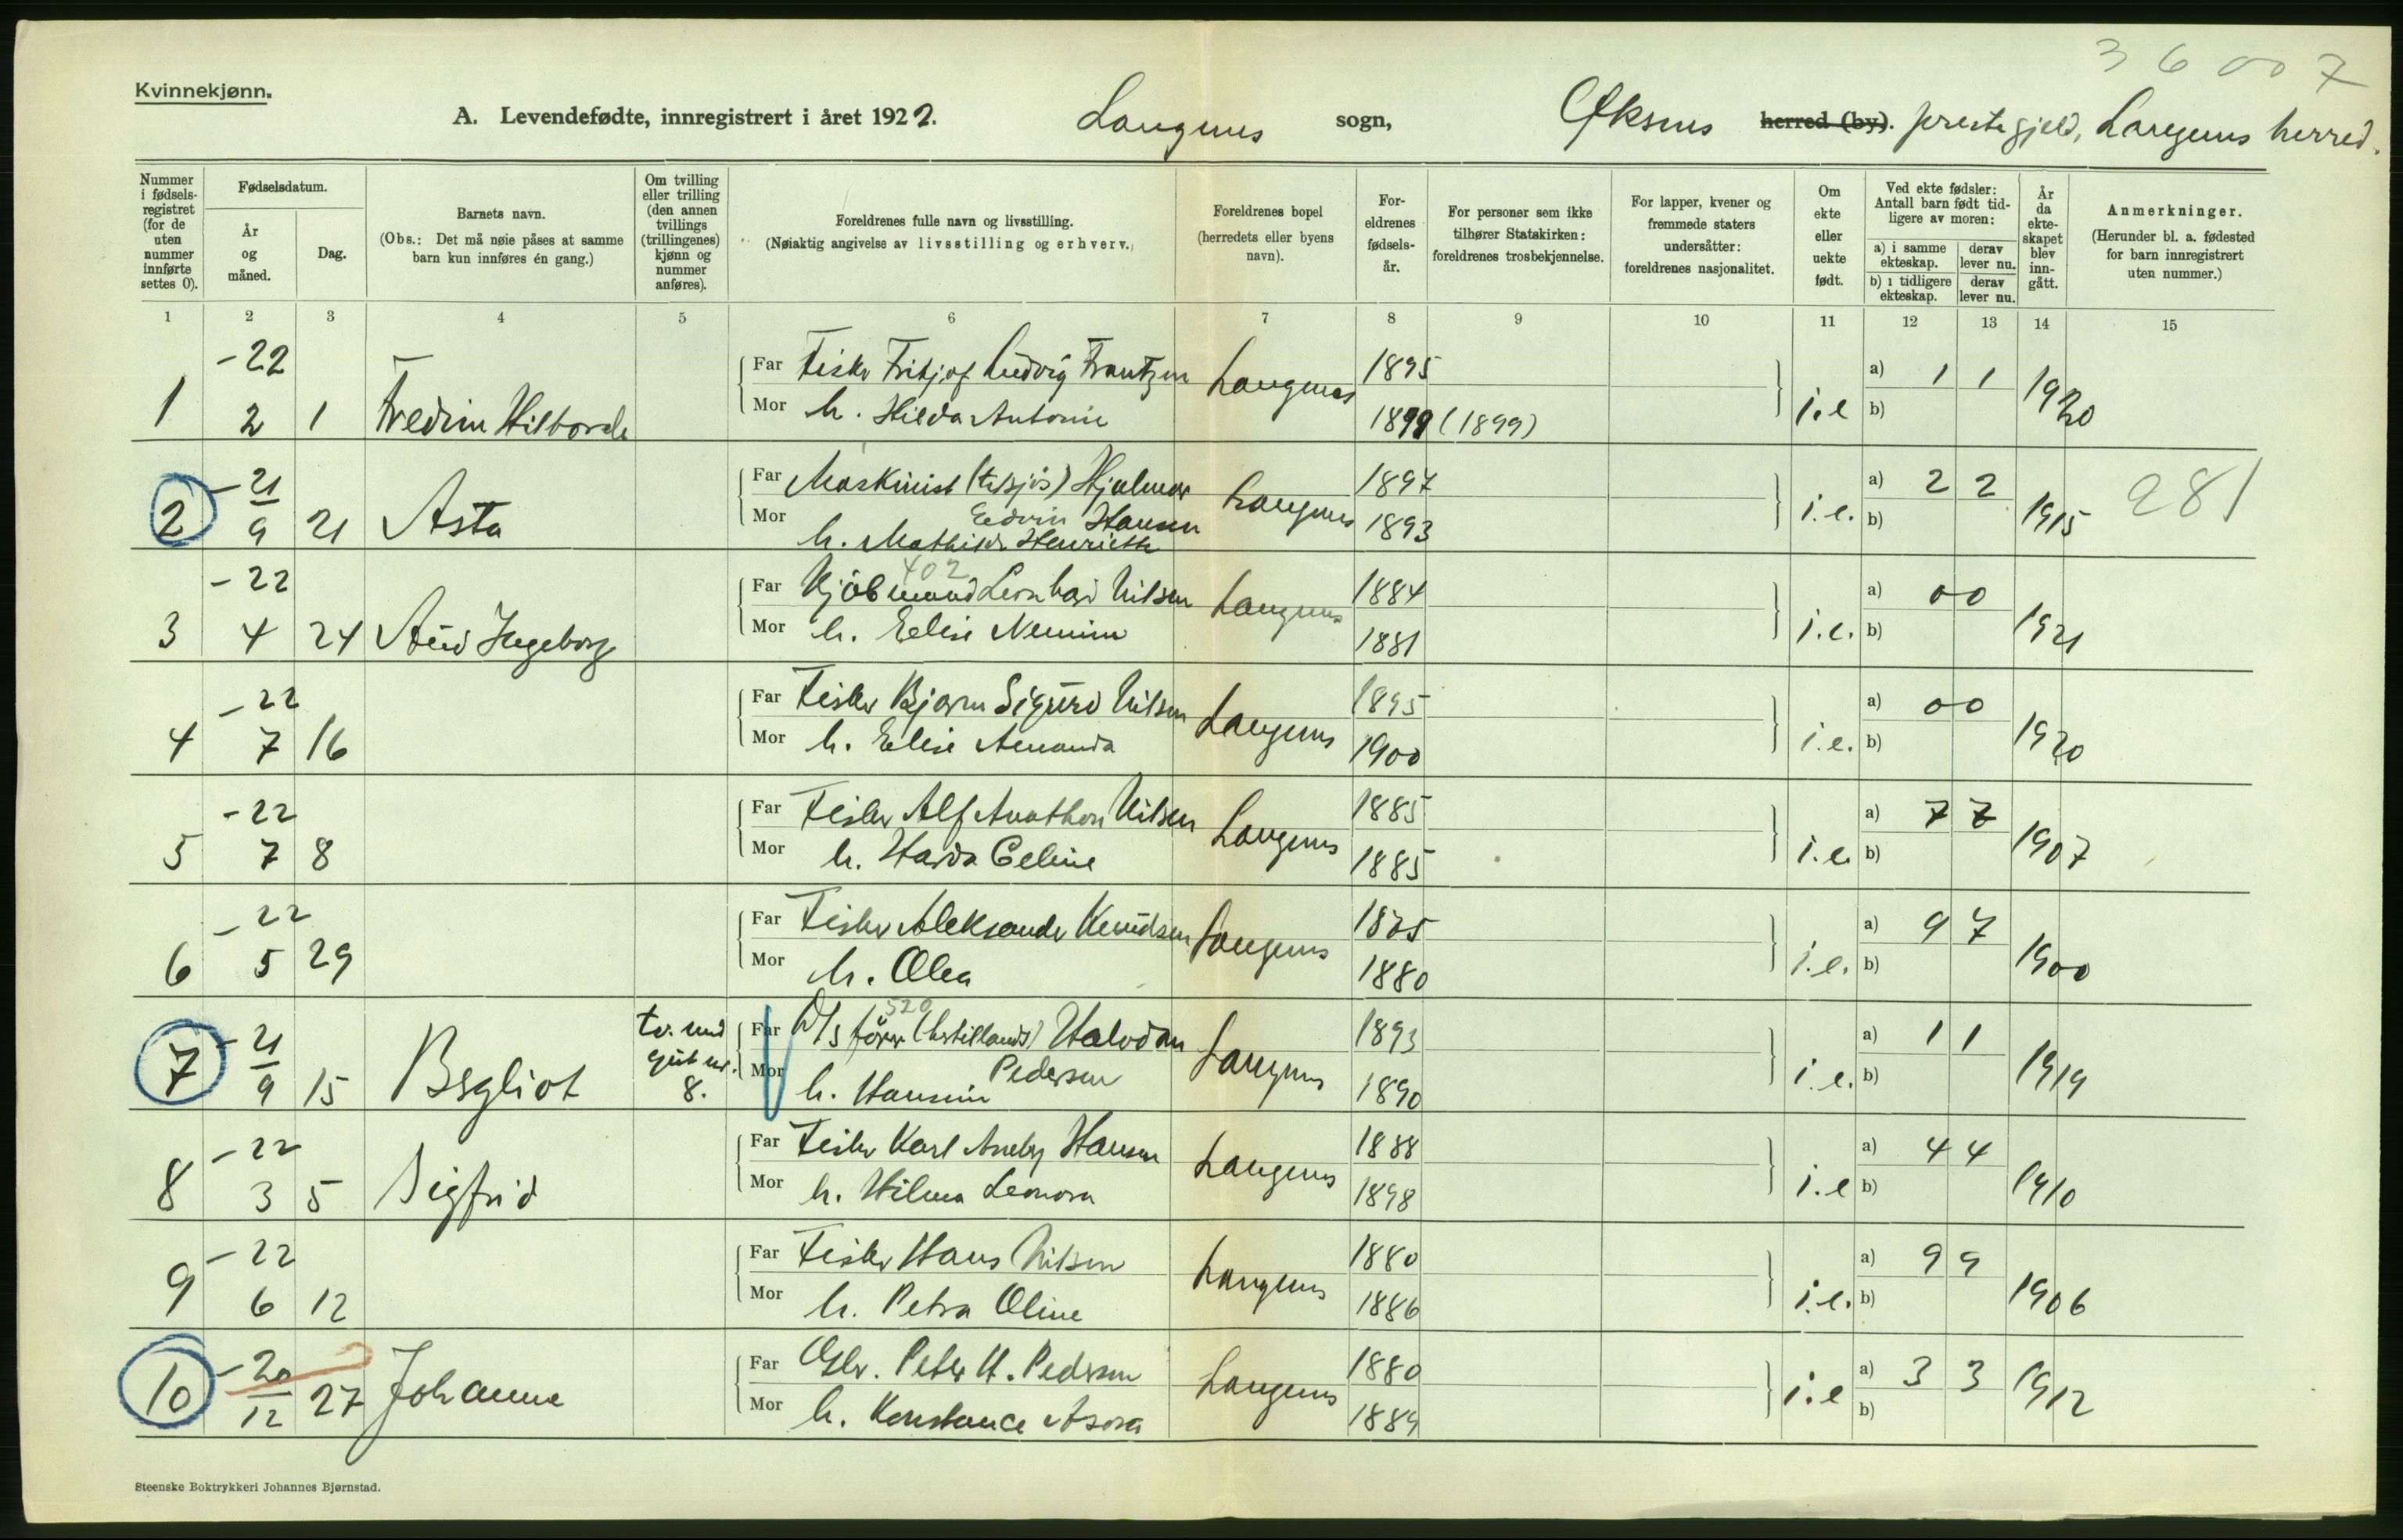 36007
Kvinnekjønn.
A. Levendefødte, innregistrert i året 1922. Langenes sogn, Øksnes herred (by). prestegjeld, Langenes herred.
Nummer i fødsels-registret (for de uten nummer innførte settes 0).
Fødselsdatum.
År og måned.
Dag.
Barnets navn.
(Obs.: Det må nøie påses at samme barn kun innføres én gang.)
Om tvilling eller trilling (den annen tvillings (trillingenes) kjønn og nummer anføres).
Foreldrenes fulle navn og livsstilling.
(Nøiaktig angivelse av livsstilling og erhverv.)
Foreldrenes bopel (herredets eller byens navn).
For-eldrenes fødsels-år.
For personer som ikke tilhører Statskirken: foreldrenes trosbekjennelse.
For lapper, kvener og fremmede staters undersåtter: foreldrenes nasjonalitet.
Om ekte eller uekte født.
Ved ekte fødsler: Antall barn født tid-ligere av moren:
a) i samme ekteskap. derav lever nu.
b) i tidligere ekteskap. derav lever nu.
År da ekte-skapet blev inn-gått.
Anmerkninger.
(Herunder bl. a. fødested for barn innregistrert uten nummer.)
1 2 3 4 5 6 7 8 9 10 11 12 13 14 15
-22 Far Fisker Fritjof Ludvig Frantzen Langenes 1895 a) 1 1 1920
1 2 1 Fredrin Hilborde Mor h. Hilda Antonie 1899 (1899) i.e b)
-21 Far Maskinist (tilsjøs) Hjalmar Langenes 1897 a) 2 2 281
2 9 21 Asta Edvin Hansen 1893 i.e. b) 1915
Mor h. Mathilde Henriette
402
-22 Far Kjøbmand Leonhard Nilsen Langenes 1884 a) 0 0
3 4 24 Aud Ingeborg Mor h. Elise 1881 i.e. b) 1921
-22 Far Fisker Bjarne Sigurd Nilsen Langenes 1895 a) 0 0
4 7 16 Mor h. Elise Amanda 1900 i.e. b) 1920
-22 Far Fisker Alf Anathon Nilsen Langenes 1885 a) 7 7
5 7 8 Mor h. Harda Celine 1885 i.e. b) 1907
-22 Far Fisker Aleksander Knudsen Langenes 1875 a) 9 7
6 5 29 Mor h. Olea 1880 i.e. b) 1900
520
-21 tv. med Far D/S fører Halvdan Langenes 1893 a) 1 1
7 9 15 Bergliot gut nr. 8. Pedersen
Mor h. Hansine 1890 i.e. b) 1919
-22 Far Fisker Karl Hansen Langenes 1888 a) 4 4
8 3 5 Sigfrid Mor h. Hilma Leonora 1898 i.e b) 1910
-22 Far Fisker Hans Nilsen Langenes 1880 a) 9 9
9 6 12 Mor h. Petra Oline 1886 i.e. b) 1906
-20 Far Gbr. Peter H. Pedersen Langenes 1880 a) 3 3
10 12 27 Johanne Mor h. Konstance Asora 1889 i.e b) 1912
Steenske Boktrykkeri Johannes Bjørnstad.